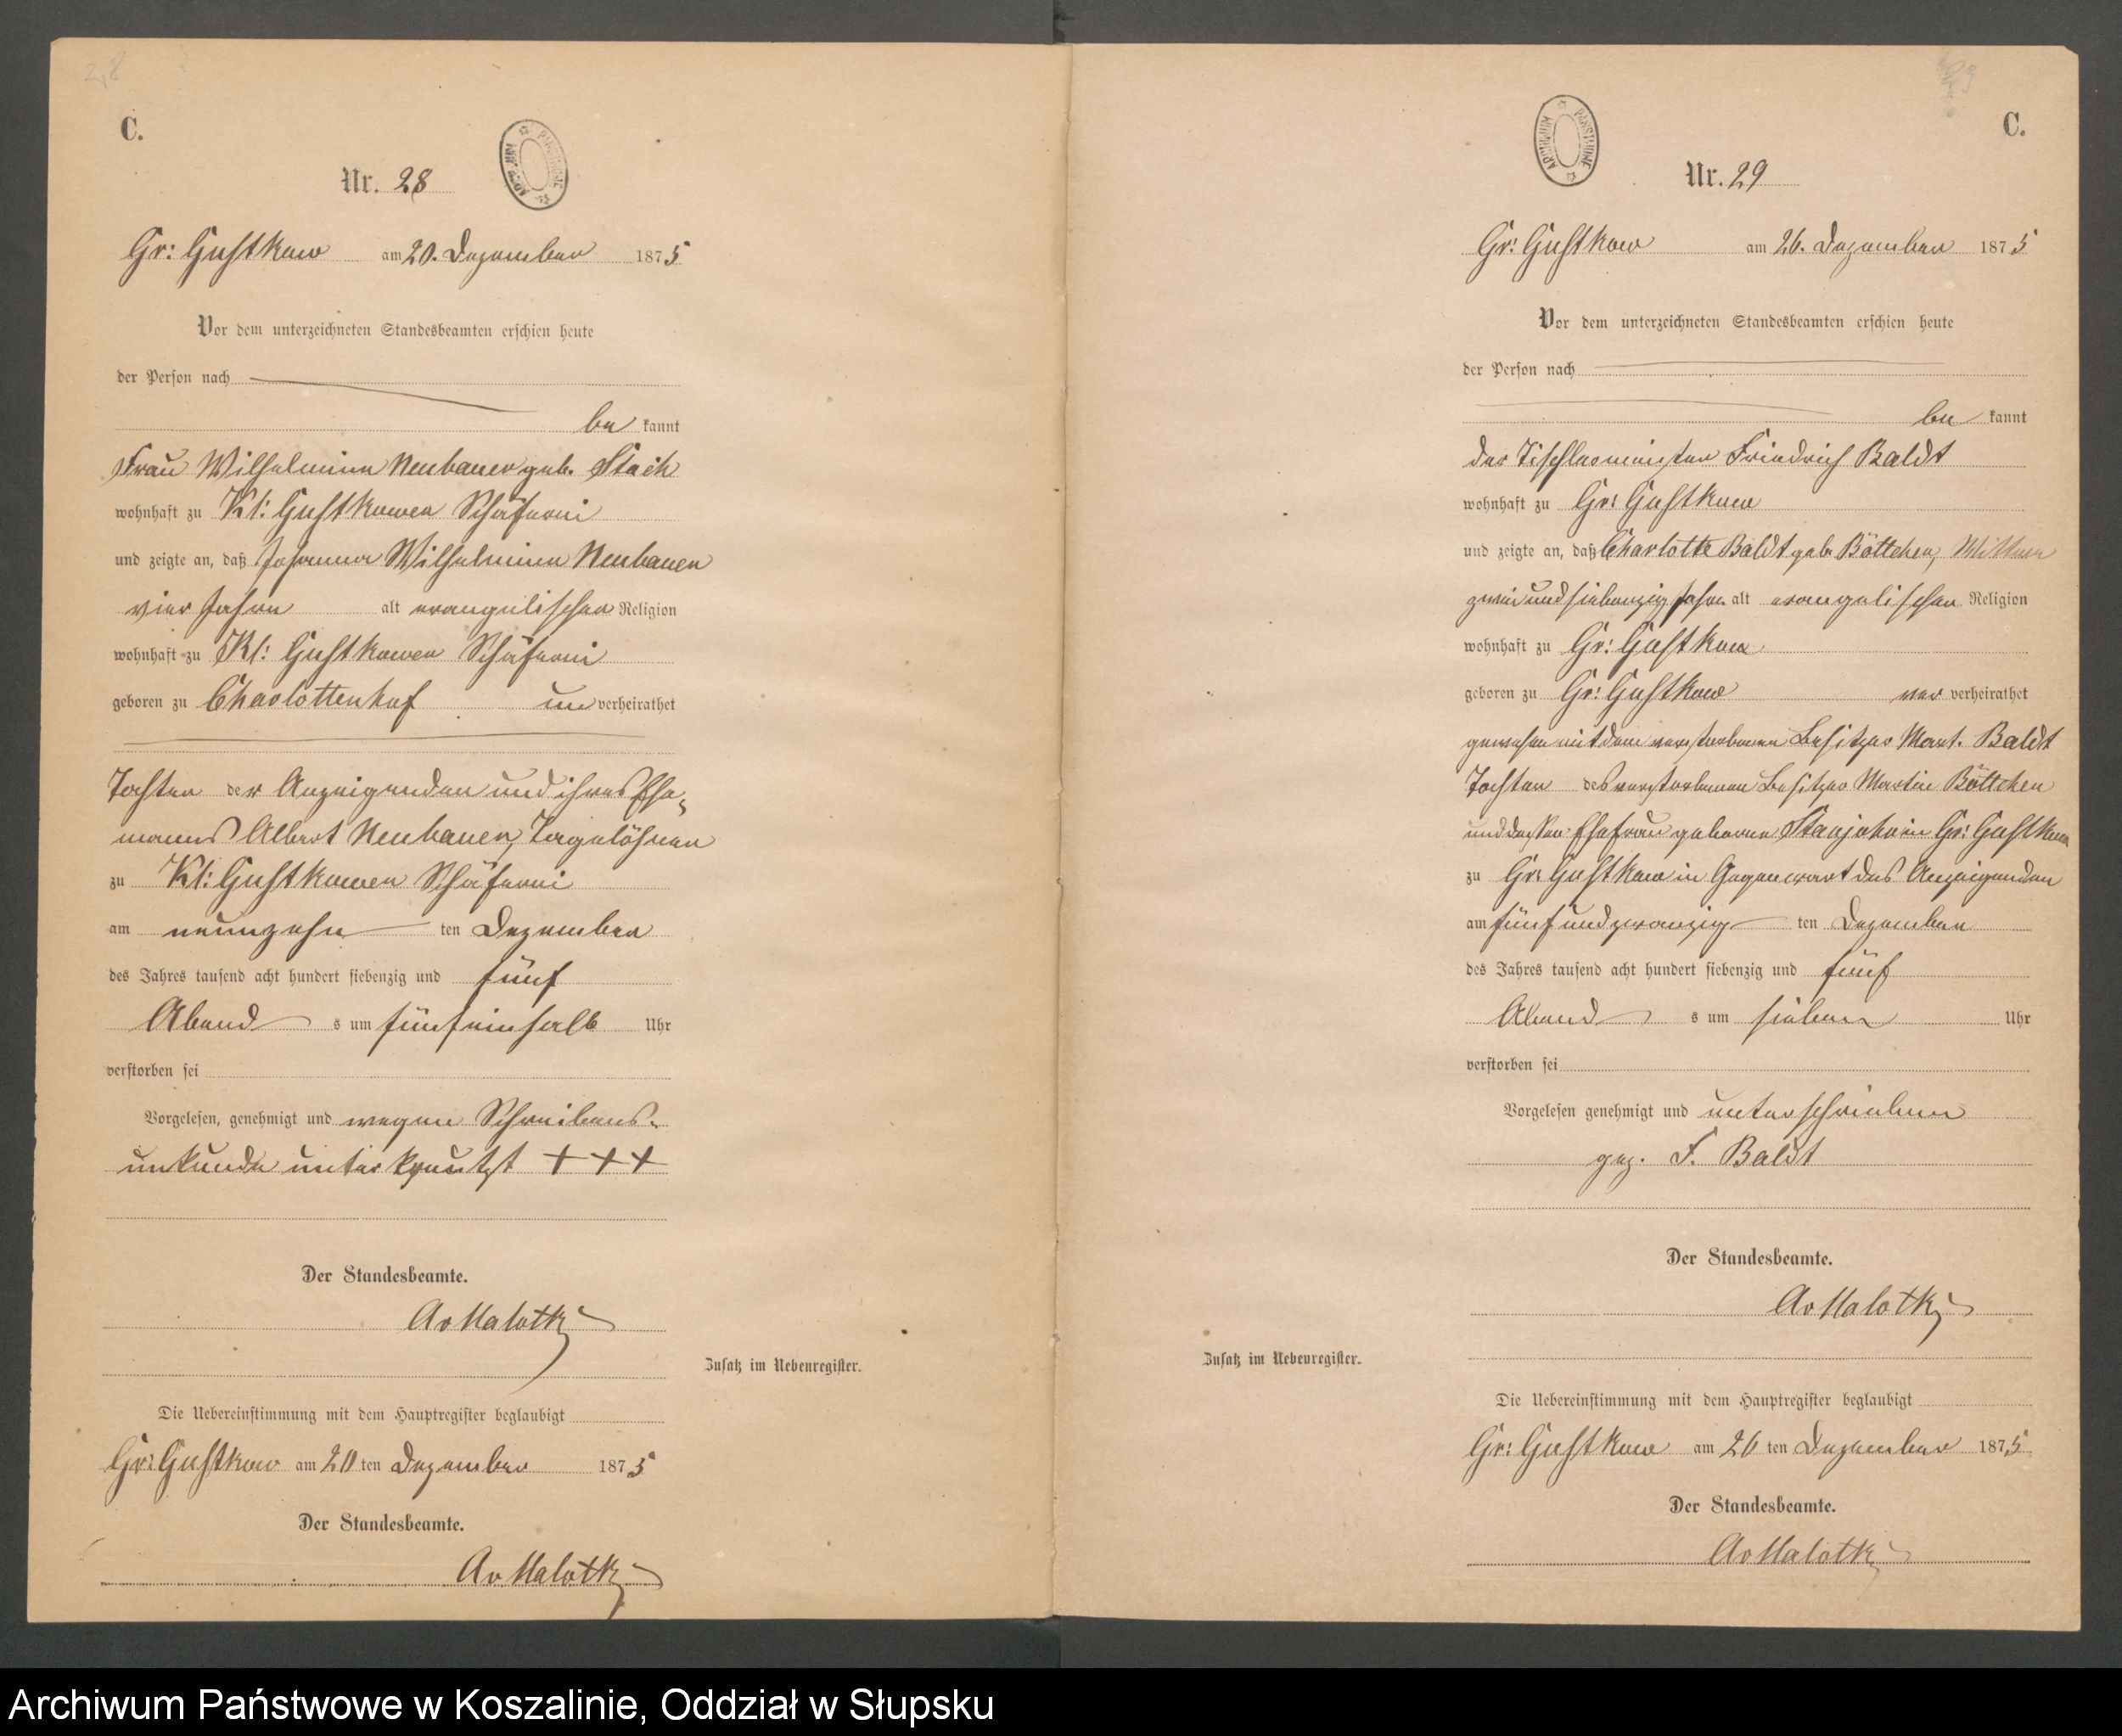 28
C.
Nr. 28
Gr: Gustkow am 20. Dezember 1875
Vor dem unterzeichneten Standesbeamten erschien heute
der Person nach
be kannt
Frau Wilhelmine Neubauer geb. Stach
wohnhaft zu Kl: Gustkower Schäferei
und zeigte an, daß Johanna Wilhelmine Neubauer
vier Jahre alt evangelischer Religion
wohnhaft zu Kl: Gustkower Schäferei
geboren zu Charlottenhof un verheirathet
Tochter der Anzeigenden und ihres Ehe-
manns Albert Neubauer, Tagelöhner
zu Kl: Gustkower Schäferei
am neunzehn ten Dezember
des Jahres tausend acht hundert siebenzig und fünf
Abend s um fünfeinhalb Uhr
verstorben sei
Vorgelesen, genehmigt und wegen Schreibens-
unkunde unterkreuzt + + +
Der Standesbeamte.
Av Malotki
Zusatz im Nebenregister.
Die Uebereinstimmung mit dem Hauptregister beglaubigt
Gr: Gustkow am 20 ten Dezember 1875
Der Standesbeamte.
Av Malotki
29
C.
ARCHIWUM PAŃSTWOWE
Nr. 29
Gr: Gustkow am 26. Dezember 1875
Vor dem unterzeichneten Standesbeamten erschien heute
der Person nach
be kannt
der Tischlermeister Friedrich Baldt
wohnhaft zu Gr: Gustkow
und zeigte an, daß Charlotte Baldt geb. Böttcher, Wittwe
zweiundsiebenzig Jahre alt evangelischer Religion
wohnhaft zu Gr: Gustkow
geboren zu Gr: Gustkow ver verheirathet
gewesen mit dem verstorbenen Besitzer Mart. Baldt
Tochter des verstorbenen Besitzer Martin Böttcher
und dessen Ehefrau geborne in Gr: Gustkow
zu Gr: Gustkow in Gegenwart des Anzeigenden
am fünfundzwanzig ten Dezember
des Jahres tausend acht hundert siebenzig und fünf
Abend s um sieben Uhr
verstorben sei
Vorgelesen genehmigt und unterschrieben
gez. F. Baldt
Der Standesbeamte.
Av Malotki
Zusatz im Nebenregister.
Die Uebereinstimmung mit dem Hauptregister beglaubigt
Gr: Gustkow am 26 ten Dezember 1875
Der Standesbeamte.
Av Malotki
Archiwum Państwowe w Koszalinie, Oddział w Słupsku